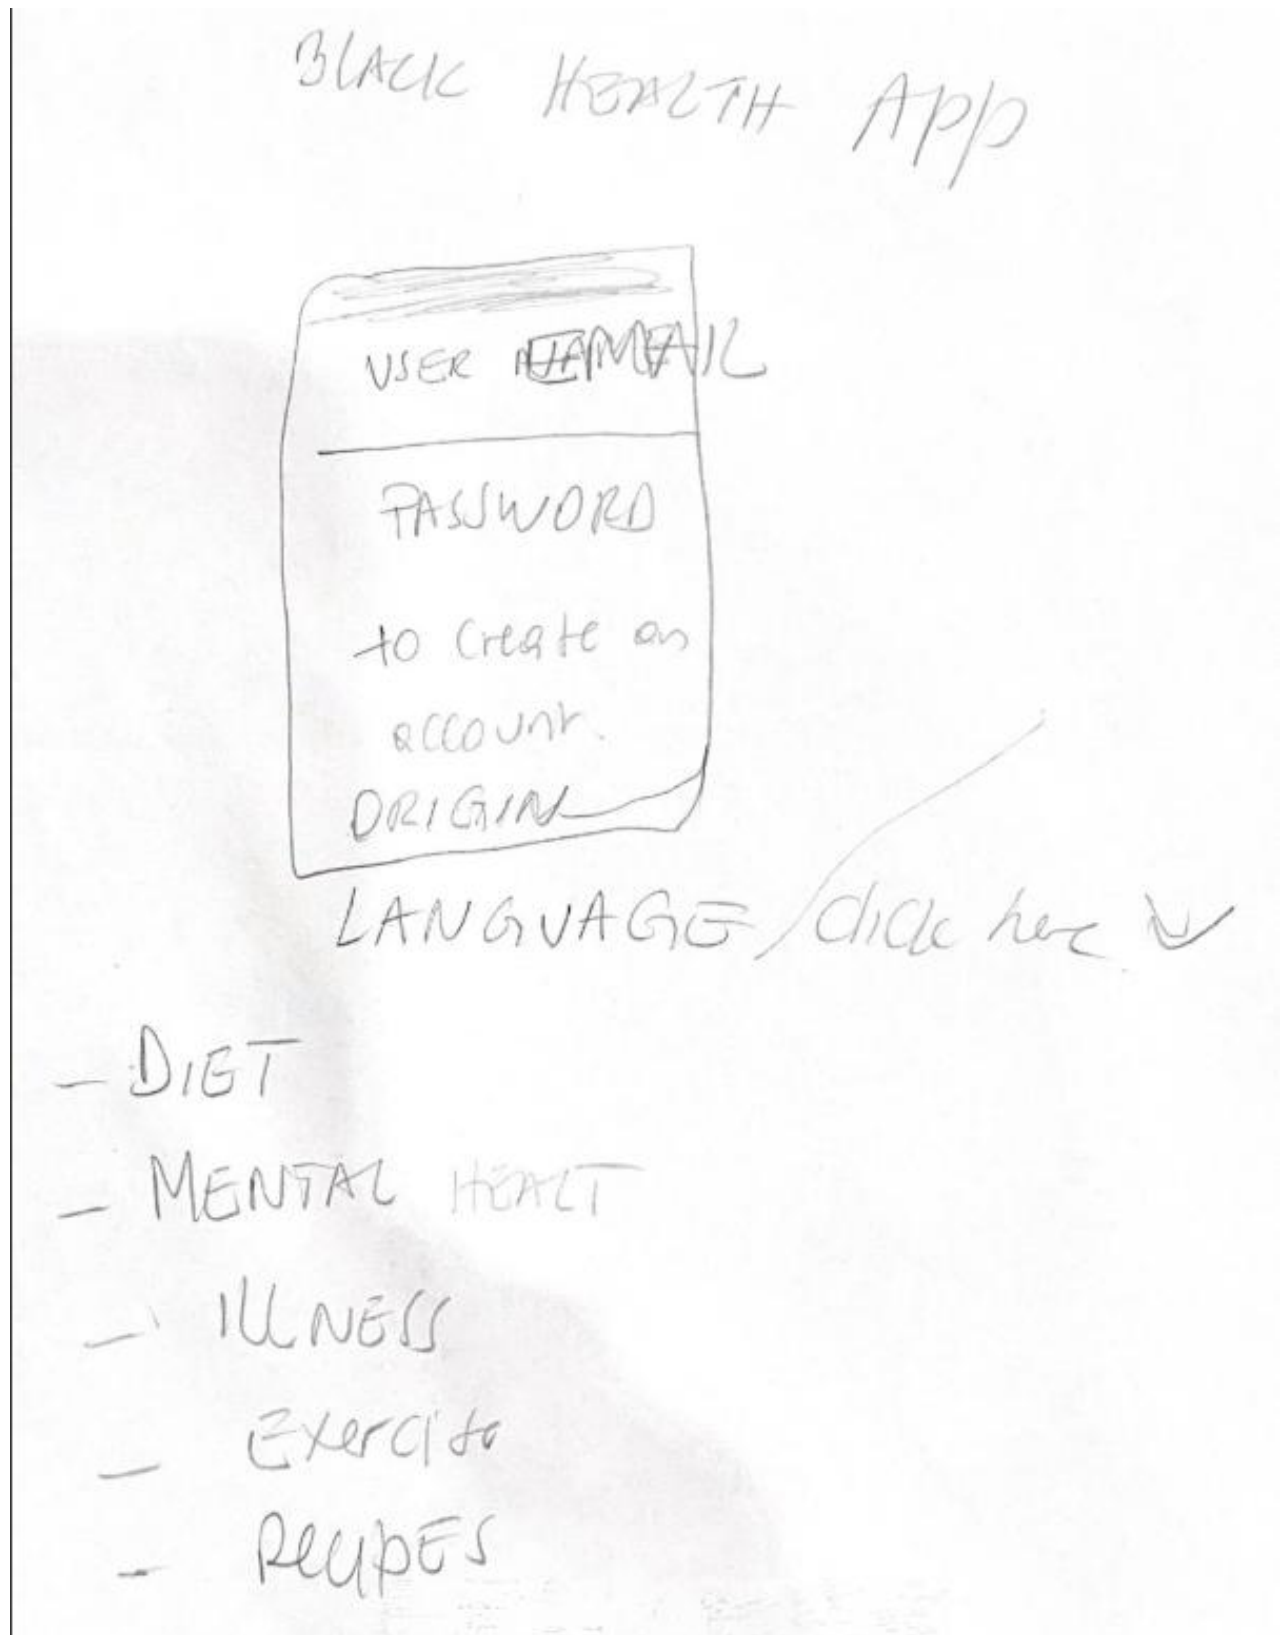 BLACK HEALTH App
USER EMAIL
PASSWORD
to create an
account.
ORIGIN
LANGUAGE / click here
- DIET
- MENTAL HEALT
- ILLNESS
- Exercise
- RECIPES